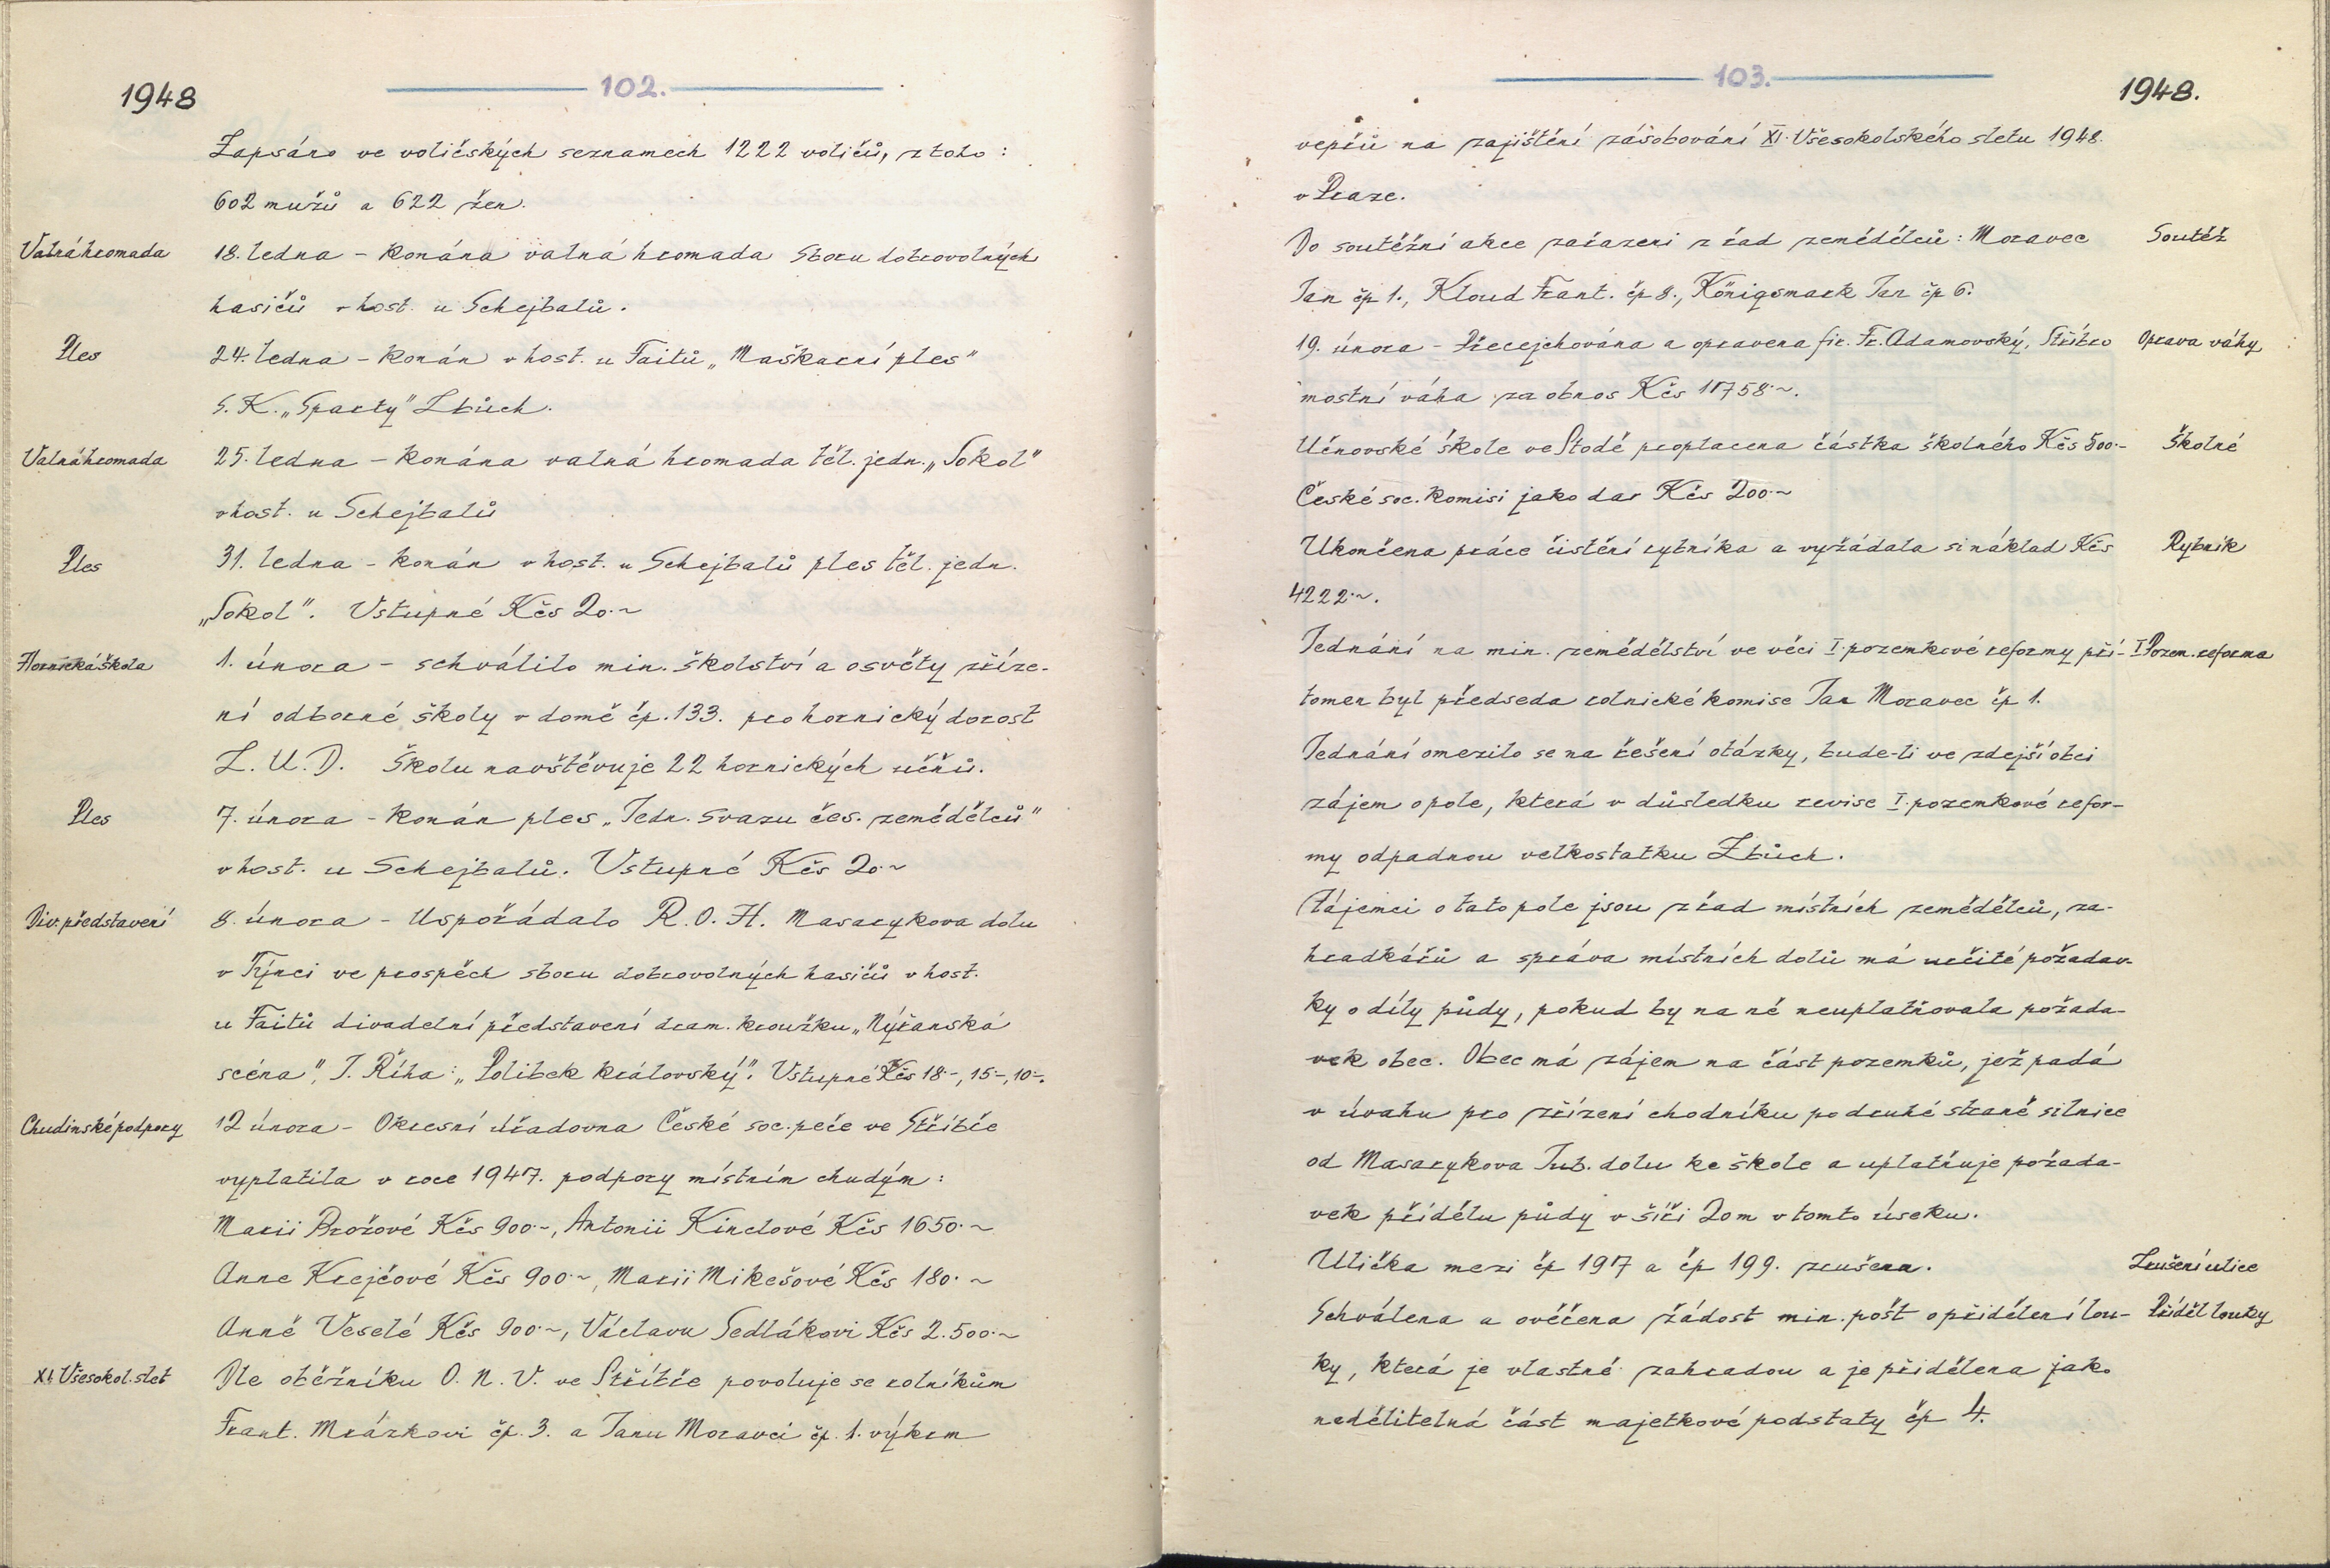 1948
102.
Zapsáno ve voličských seznamech 1222 voličů, z toho :
602 mužů a 622 žen.
Valná hromada
18. ledna - konána valná hromada Sboru dobrovolných
hasičů v host. u Schejbalů.
Ples
24. ledna - konán v host. u Faitů „Maškarní ples"
S. K. „Sparty" Zbůch.
Valná hromada
25. ledna - konána valná hromada těl. jedn. „Sokol"
v host. u Schejbalů
Ples
31. ledna - konán v host. u Schejbalů ples těl. jedn.
„Sokol". Vstupné Kčs 20.~
Hornická škola
1. února - schválilo min. školství a osvěty zříze-
ní odborné školy v domě čp. 133. pro hornický dorost
Z. U. D. Školu navštěvuje 22 hornických učňů.
Ples
7. února - konán ples „Jedn. svazu čes. zemědělců"
v host. u Schejbalů. Vstupné Kčs 20.~
Div. představení
8. února - Uspořádalo R. O. H. Masarykova dolu
v Týnci ve prospěch sboru dobrovolných hasičů v host.
u Faitů divadelní představení dram. kroužku „Nýřanská
scéna", J. Říha: „Polibek královský". Vstupné Kčs 18.-, 15-, 10-.
Chudinské podpory
12 února - Okresní úřadovna České soc. péče ve Stříbře
vyplatila v roce 1947. podpory místním chudým :
Marii Brožové Kčs 900.-, Antonii Kinclové Kčs 1650.~
Anne Krejčové Kčs 900.~, Marii Mikešové Kčs 180.~
Anně Veselé Kčs 900.~, Václavu Sedlákovi Kčs 2.500.~
XI. Všesokol. slet
Dle oběžníku O. N. V. ve Stříbře povoluje se rolníkům
Frant. Mrázkovi čp. 3. a Janu Moravci čp. 1. výkrm
103.
1948.
vepřů na zajištění zásobování XI. Všesokolského sletu 1948.
v Praze.
Do soutěžní akce zařazeni z řad zemědělců : Moravec
Soutěž
Jan čp 1., Kloud Frant. čp 8., Königsmark Jan čp 6.
19. února - Přecejchována a opravena fir. Fr. Adamovský, Stříbro
Oprava váhy
mostní váha za obnos Kčs 11758.~.
Učňovské škole ve Stodě proplacena částka školného Kčs 500.-
Školné
České soc. komisi jako dar Kčs 200.~
Ukončena práce čistění rybníka a vyžádala si náklad Kčs
Rybník
4222.~.
Jednání na min. zemědělství ve věci I. pozemkové reformy pří-
I Pozem. reforma
tomen byl předseda rolnické komise Jan Moravec čp 1.
Jednání omezilo se na řešení otázky, bude-li ve zdejší obci
zájem o pole, která v důsledku revise I. pozemkové refor-
my odpadnou velkostatku Zbůch.
Zájemci o tato pole jsou z řad místních zemědělců, za-
hradkářů a správa místních dolů má určité požadav-
ky o díly půdy, pokud by na ně neuplatňovala požada-
vek obec. Obec má zájem na část pozemků, jež padá
v úvahu pro zřízení chodníku po druhé straně silnice
od Masarykova Jub. dolu ke škole a uplatňuje požada-
vek přídělu půdy v šíři 20 m v tomto úseku.
Ulička mezi čp 197 a čp 199. zrušena.
Zrušení ulice
Schválena a ověřena žádost min. pošt o přidělení lou-
Příděl louky
ky, která je vlastně zahradou a je přidělena jako
nedělitelná část majetkové podstaty čp 4.